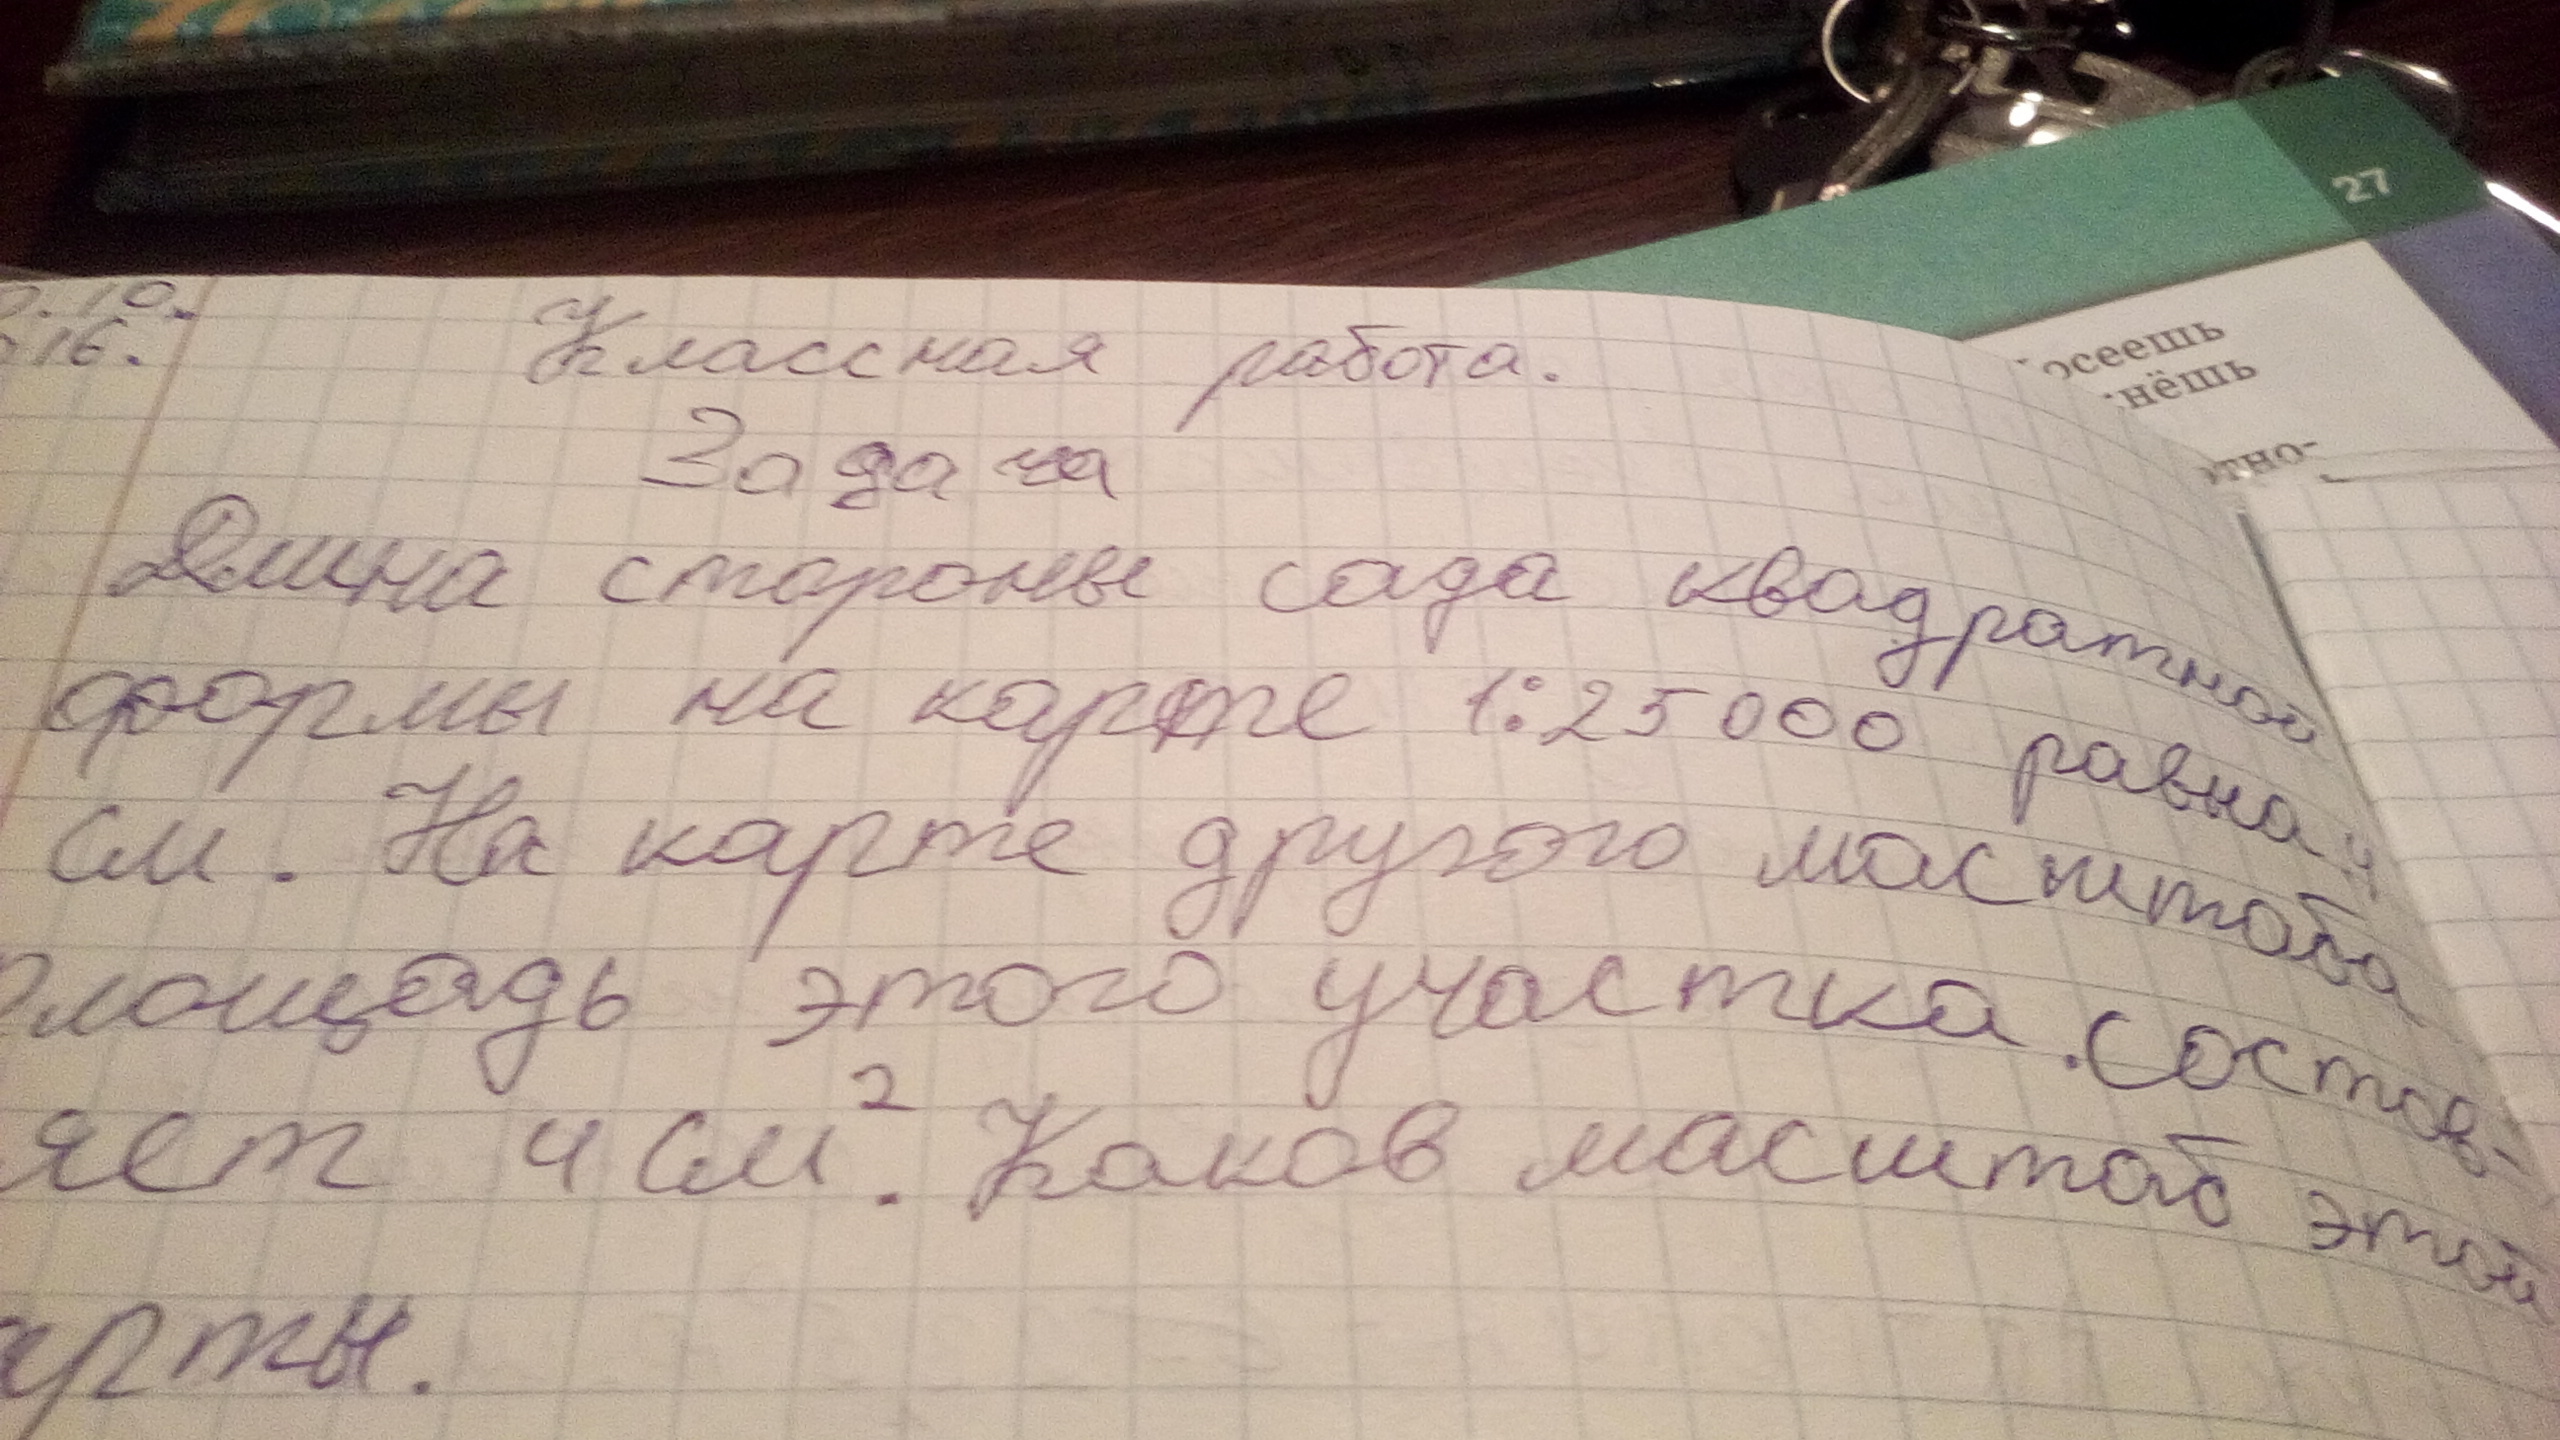 27
16.
Классная работа.
Задача
Длина стороны сада квадратной
формы на карте 1:25000 равна 4
см. На карте другого масштаба
площадь этого участка состав-
яет 4 см². Каков масштаб этой
арты.
осеешь
нёшь
тно-